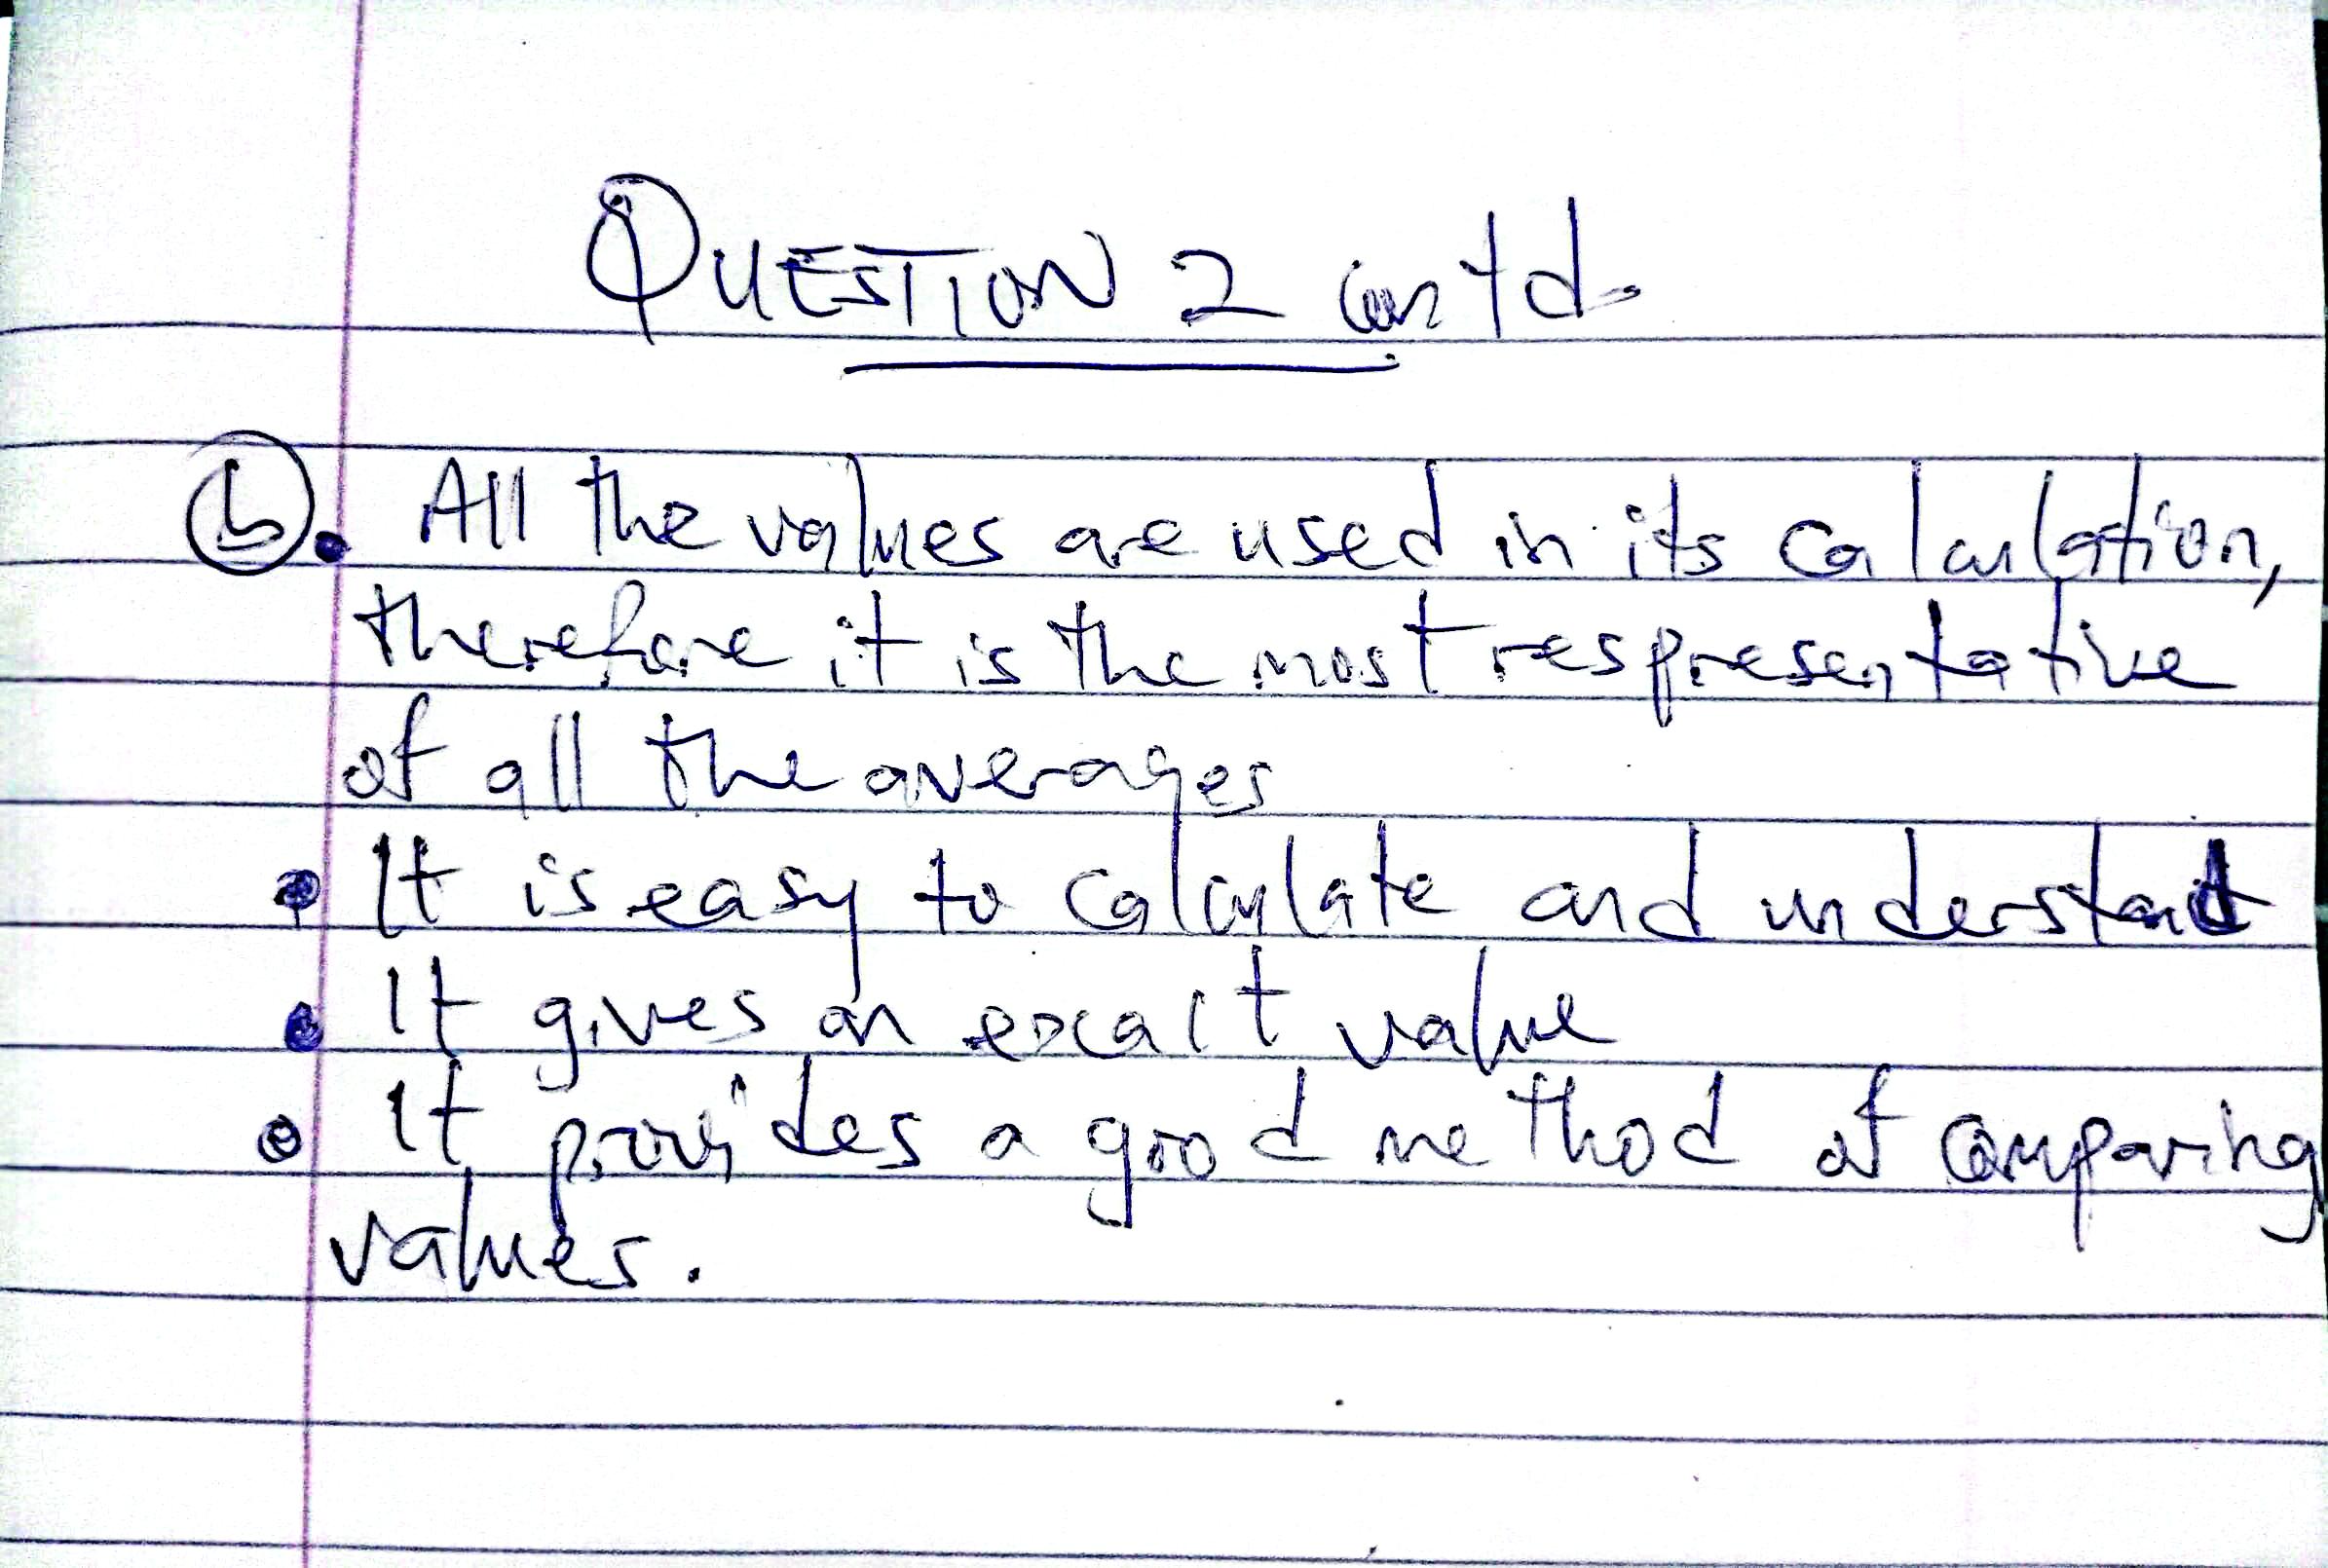 QUESTION 2 contd.
(b). All the values are used in its calculation,
therefore it is the most respresentative
of all the averages
• It is easy to calculate and understand
• It gives an exact value
• It provides a good method of comparing
values.